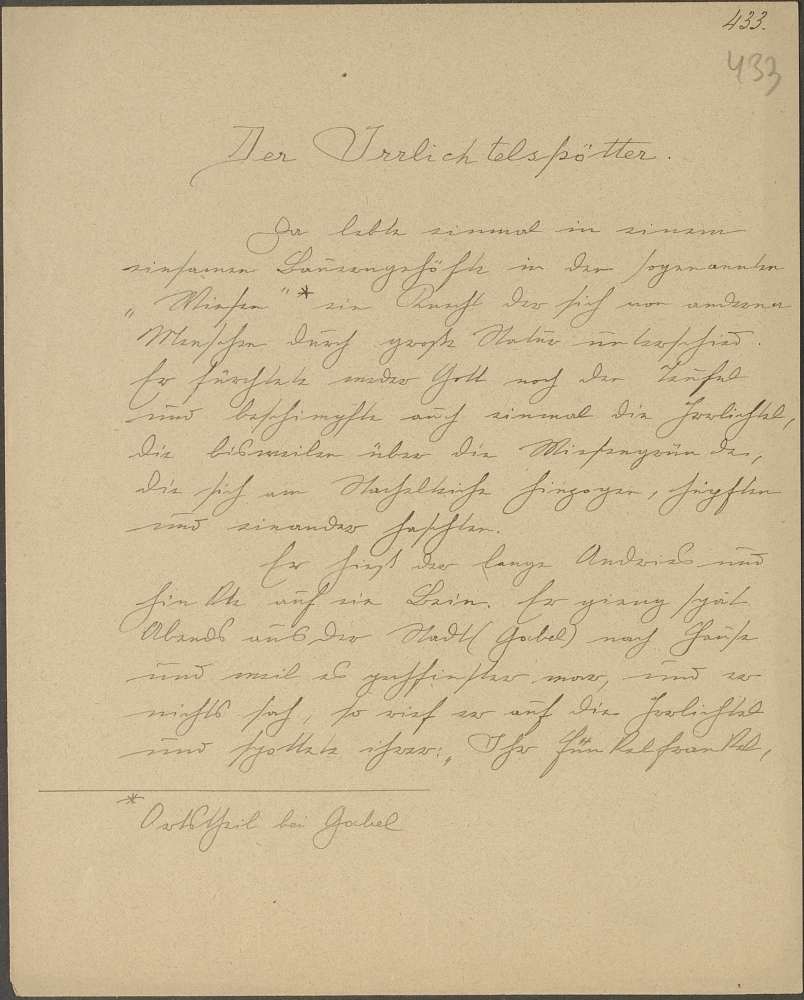 433.
433
Der Irrlichtelspötter.
Da lebte einmal in einem
einsamen Bauerngehöfte in den sogenannten
„Wiesen"* ein Knecht der sich von anderen
Menschen durch große Statur unterschied.
Er fürchtete weder Gott noch den Teufel
und beschimpfte auch einmal die Irrlichtel,
die bisweilen über die Wiesengründe,
die sich am Stachelteiche hinzogen, hüpften
und einander haschten.
Er hieß der lange Andreas und
hinkte auf ein Bein. Er gieng spät
Abends aus der Stadt (Gabel) nach Hause
und weil es pechfinster war, und er
nichts sah, so rief er auf die Irrlichtel
und spottete ihrer: „Ihr Funkelfrankel,
* Ortstheil bei Gabel